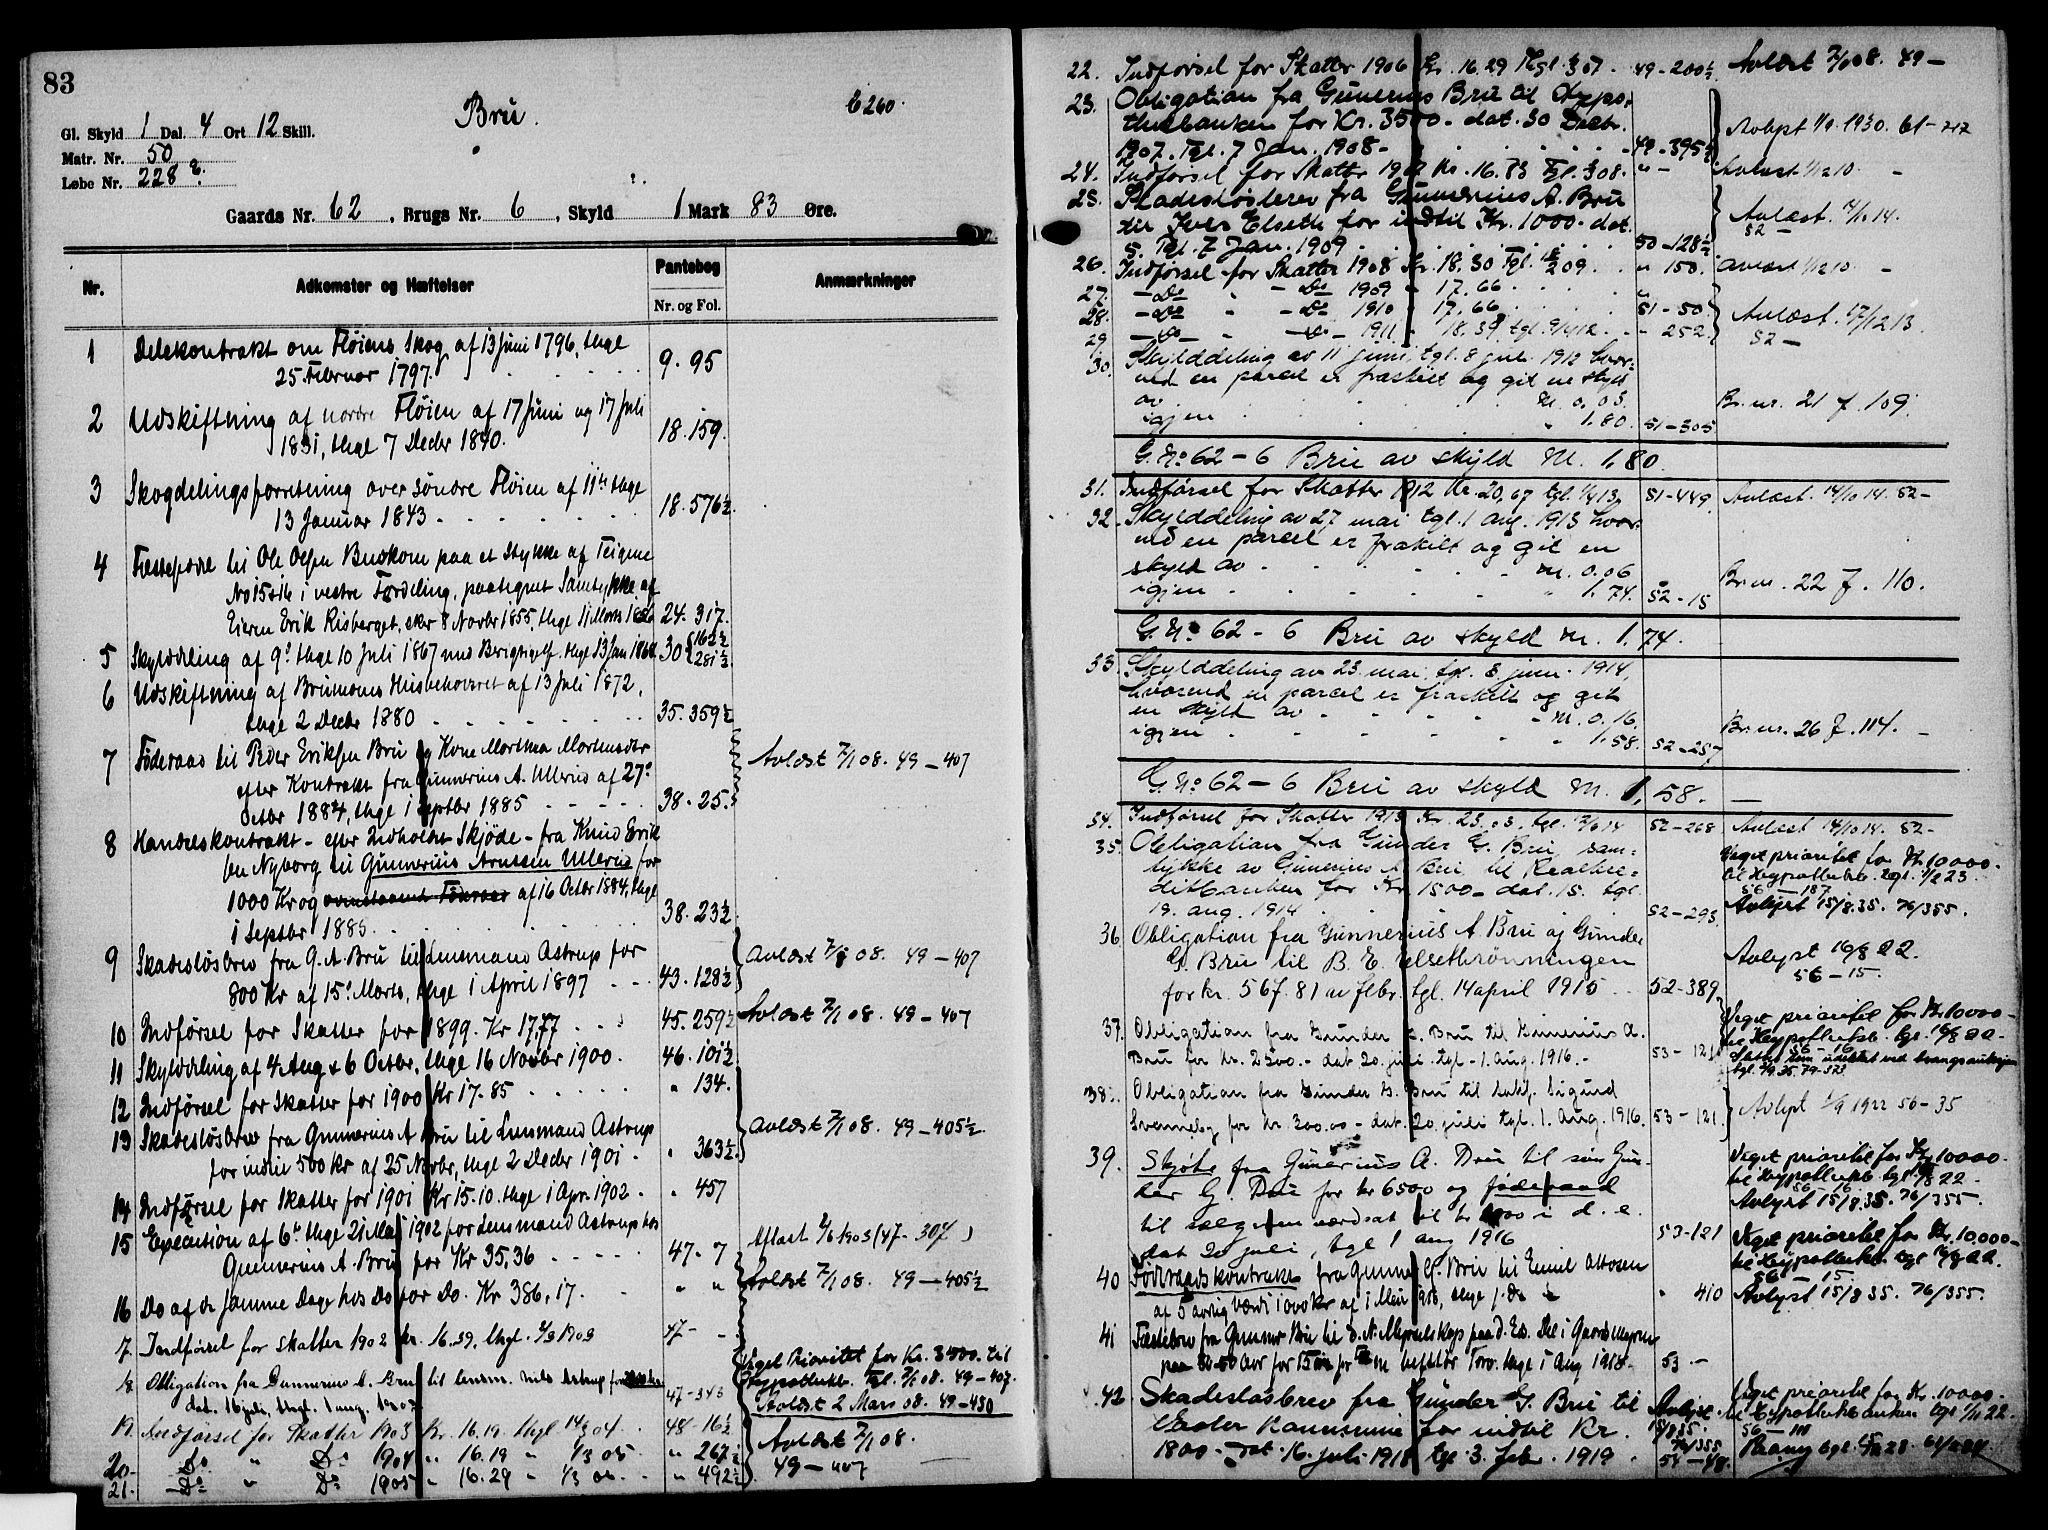 83
Bru.
C 260.
Gl. Skyld 1 Dal. 4 Ort 12 Skill.
Matr. Nr. 50
Løbe Nr. 228 e.
Gaards Nr. 62, Brugs Nr. 6, Skyld 1 Mark 83 Øre.
Nr. Adkomster og Hæftelser Pantebog Nr. og Fol. Anmærkninger
1 Delekontrakt om Fløiens Skog af 13 Juni 1796, thgl
25 Februar 1797. 9. 95
2 Udskiftning af nordre Fløien af 17 Juni og 17 Juli
1831, thgl 7 Decbr 1840. 18. 159.
3 Skogdelingsforretning over søndre Fløien af 11te thgl
13 Januar 1843 18. 576½
4 Fæsteseddel til Ole Olsen Buskom paa et Stykke af Teigene
No 15 & 16 i vestre Fordeling, paategnet Samtykke af
Eieren Erik Risberget, 8 Novbr 1855, thgl 11 Marts 1856 24. 317.
5 Skylddeling af 9. thgl 10 Juli 1867 med Berigtigelse thgl 13 Jan 1868 30 {162½ 251½
6 Udskiftning af Brumoens Husbehovsret af 13 Juli 1872,
thgl 2 Decbr 1880 35. 359½
7 Føderaad til Peder Eriksen Bru og Kone Marthea Mortensdtr
efter Kontrakt fra Gunnerius A. Ullerud af 27.
Octbr 1884, thgl 1 Septbr 1885 38. 25. Avlæst 7/1 08. 49-407
8 Handelskontrakt - efter Indholdet Skjøde - fra Knud Erik
sen Nyborg til Gunnerius Arnesen Ullerud for
1000 Kr og ovenstaaende Føderaad af 16 Octbr 1884, thgl
1 Septbr 1885. 38. 23½
9 Skadesløsbrev fra G. A. Bru til Lensmand Astrup for
800 Kr af 15. Marts, thgl 1 April 1897 43. 128½ Avlæst 7/1 08. 49-407
10 Indførsel for Skatter for 1899. Kr 17,77 45. 259½ Avlæst 7/1 08. 49-407
11 Skylddeling af 4 Aug & 6 Octbr, thgl 16 Novbr 1900. 46. 101½
12 Indførsel for Skatter for 1900 Kr 17.85 " 134.
13 Skadesløsbrev fra Gunnerius A Bru til Lensmand Astrup
for indtil 500 Kr af 25 Novbr, thgl 2 Decbr 1901 " 363½ Avlæst 7/1 08. 49-405½
14 Indførsel for Skatter for 1901 Kr 15.10. thgl 1 Apr. 1902 " 457
15 Execution af 6te thgl 21 Mai 1902 for Lensmand Astrup hos
Gunnerius A. Bru for Kr 35,36 47. 7 Aflæst 1903 (47-307)
16 Do af de samme Dage hos Do for Do. Kr 386,17. " " Avlæst 7/1 08. 49-405½
7. Indførsel for skatter 1902 kr. 16.39, thgl. 1903 47-
18. Obligation fra Gunnerius A. Bru til lensm. Nils Astrup for
dat. 16 juli, thgl. 1 aug. 1903 47-343 Veget Prioritet for Kr. 3500. til
Hypothekb. Tgl. 7/1 08. 49-407.
Avlæst 2 Mars 08. 49-480
19. Indførsel for Skatter 1903 Kr. 16.19. thgl 14/3 04. 48-16½
20. Do " Do 1904 " 16.19 " 1/3 05 " 267½ Avlæst 7/1 08.
21. Do " Do 1905 " 16.29 " 1/3 06. " 492½ 49-407
22. Indførsel for Skatter 1906 Kr. 16.29 Thgl. 07. 49-200½ Avlæst 7/1 08. 49-
23. Obligation fra Gunerius Bru til Hypo-
thekbanken for Kr. 3500 - dat. 30 Decbr.
1907. Tgl. 7 Jan. 1908 - 49-395½ Avlyst 1/9. 1930. 61-212
24. Indførsel for Skatter 1907 Kr. 16.83 Tgl. 08. " - Avlæst 1/12 10. -
25. Skadesløsbrev fra Gunnerius A. Bru
til Iver Elseth for indtil Kr. 1000 - dat.
5. Tgl. 7 Jan. 1909. 50-128½ Avlæst. 14. 52-
26. Indførsel for Skatter 1908 Kr. 18.30 Tgl. 09. " 150. Avlæst 1/12 10. -
27. - Do " - Do 1909 " 17.66. "
28. - Do " - Do 1910 " 17.66. 51-50 Avlæst. 17/12 13.
29 - Do " - Do - 1911 " 18.39 tgl. 9/4 12. - 252. 52-
30. Skylddeling av 11 juni, tgl. 8 juli 1912 hvor-
ved en parcel er fraskilt og git en skyld
av M. 0,03. Br. nr. 21 f. 109.
igjen " 1,80. 51-305
G. No 62-6 Bru av skyld M. 1,80.
31. Indførsel for Skatter 1912 Kr. 20,67 tgl. 13, 51-449. Avlæst. 14/10 14. 52-
32. Skylddeling av 27 mai tgl. 1 aug. 1913 hvor-
ved en parcel er fraskilt og git en
skyld av M. 0.06 Br. nr. 22 f. 110.
igjen " 1,74. 52-15
G. No 62-6 Bru av skyld M. 1,74.
33. Skylddeling av 23 mai, tgl. 8 juni 1914,
hvorved en parcel er fraskilt og git
en skyld av M. 0,16.
igjen " 1.58. 52-257 Br. nr. 26 f. 114. -
G. No 62-6 Bru av skyld M. 1,58.
34. Indførsel for Skatter 1913 Kr. 23.03. tgl. 14 52-268 Avlæst 14/10 14. 52-
35. Obligation fra Gunder G. Bru sam-
tykke av Gunerius A Bru til Realkre-
ditbanken for Kr. 1500 - dat. 15. tgl.
19. aug. 1914 52-293 Veget prioritet for Kr 10000.-
til Hypothekb. tgl. 1/2 23.
56-187
Avlyst 15/8 35. 76/355.
36. Obligation fra Gunnerius A. Bru og Gunder
G. Bru til B. E. Ulsethrønningen
for kr. 567.81 av febr. tgl. 14 april 1915 52-389 Avlyst 16/8 22.
56-15.
37. Obligation fra Gunder G. Bru til Gunerius A.
Bru for kr. 2500. - dat. 20. juli tgl. 1. aug. 1916. 53-121 Veget prioritet for Kr 10000-
til Hypothekb. tgl. 16/8 22-
56-16
Slettes som udækket ved tvangsauksjon
38. Obligation fra Gunder G. Bru til Sigurd
Svenneby for kr. 300.00 - dat. 20 juli tgl. 1. Aug. 1916. 53-121 Avlyst 1922 56-35
39. Skjøte fra Gunerius A. Bru til søn Gun-
der G. Bru for kr 6500 og føderaad
til sælgeren værdsat til kr. 1000 i d. e.
dat 20 juli, tgl 1 aug 1916 53-121 Veget prioritet for Kr 10000-
til Hypothekb. tgl. 16/8 22-
56-16
Avlyst 15/8 35. 76/355.
40 Føderaadskontrakt fra Gunder G. Bru til Emil Ottosen
af 5 aarlig Værdi 1000 Kr af 1 Mai 1918, thgl " 410 Veget prioritet for Kr. 10.000-
til Hypothekb. tgl 16/8 22.
56-15.
Avlyst 15/8 35. 76/355.
41 Fæstebrev fra Gunner Bru til
53-
42 Skadesløsbrev fra Gunder G. Bru til
for indtil Kr.
1800 - dat. 16. juli 1918 tgl. 3. febr. 1919 54-48. Avlyst. 15/8 35. 76/355
Veget prioritet for Kr. 10000-
til Hypothekbanken tgl 22.